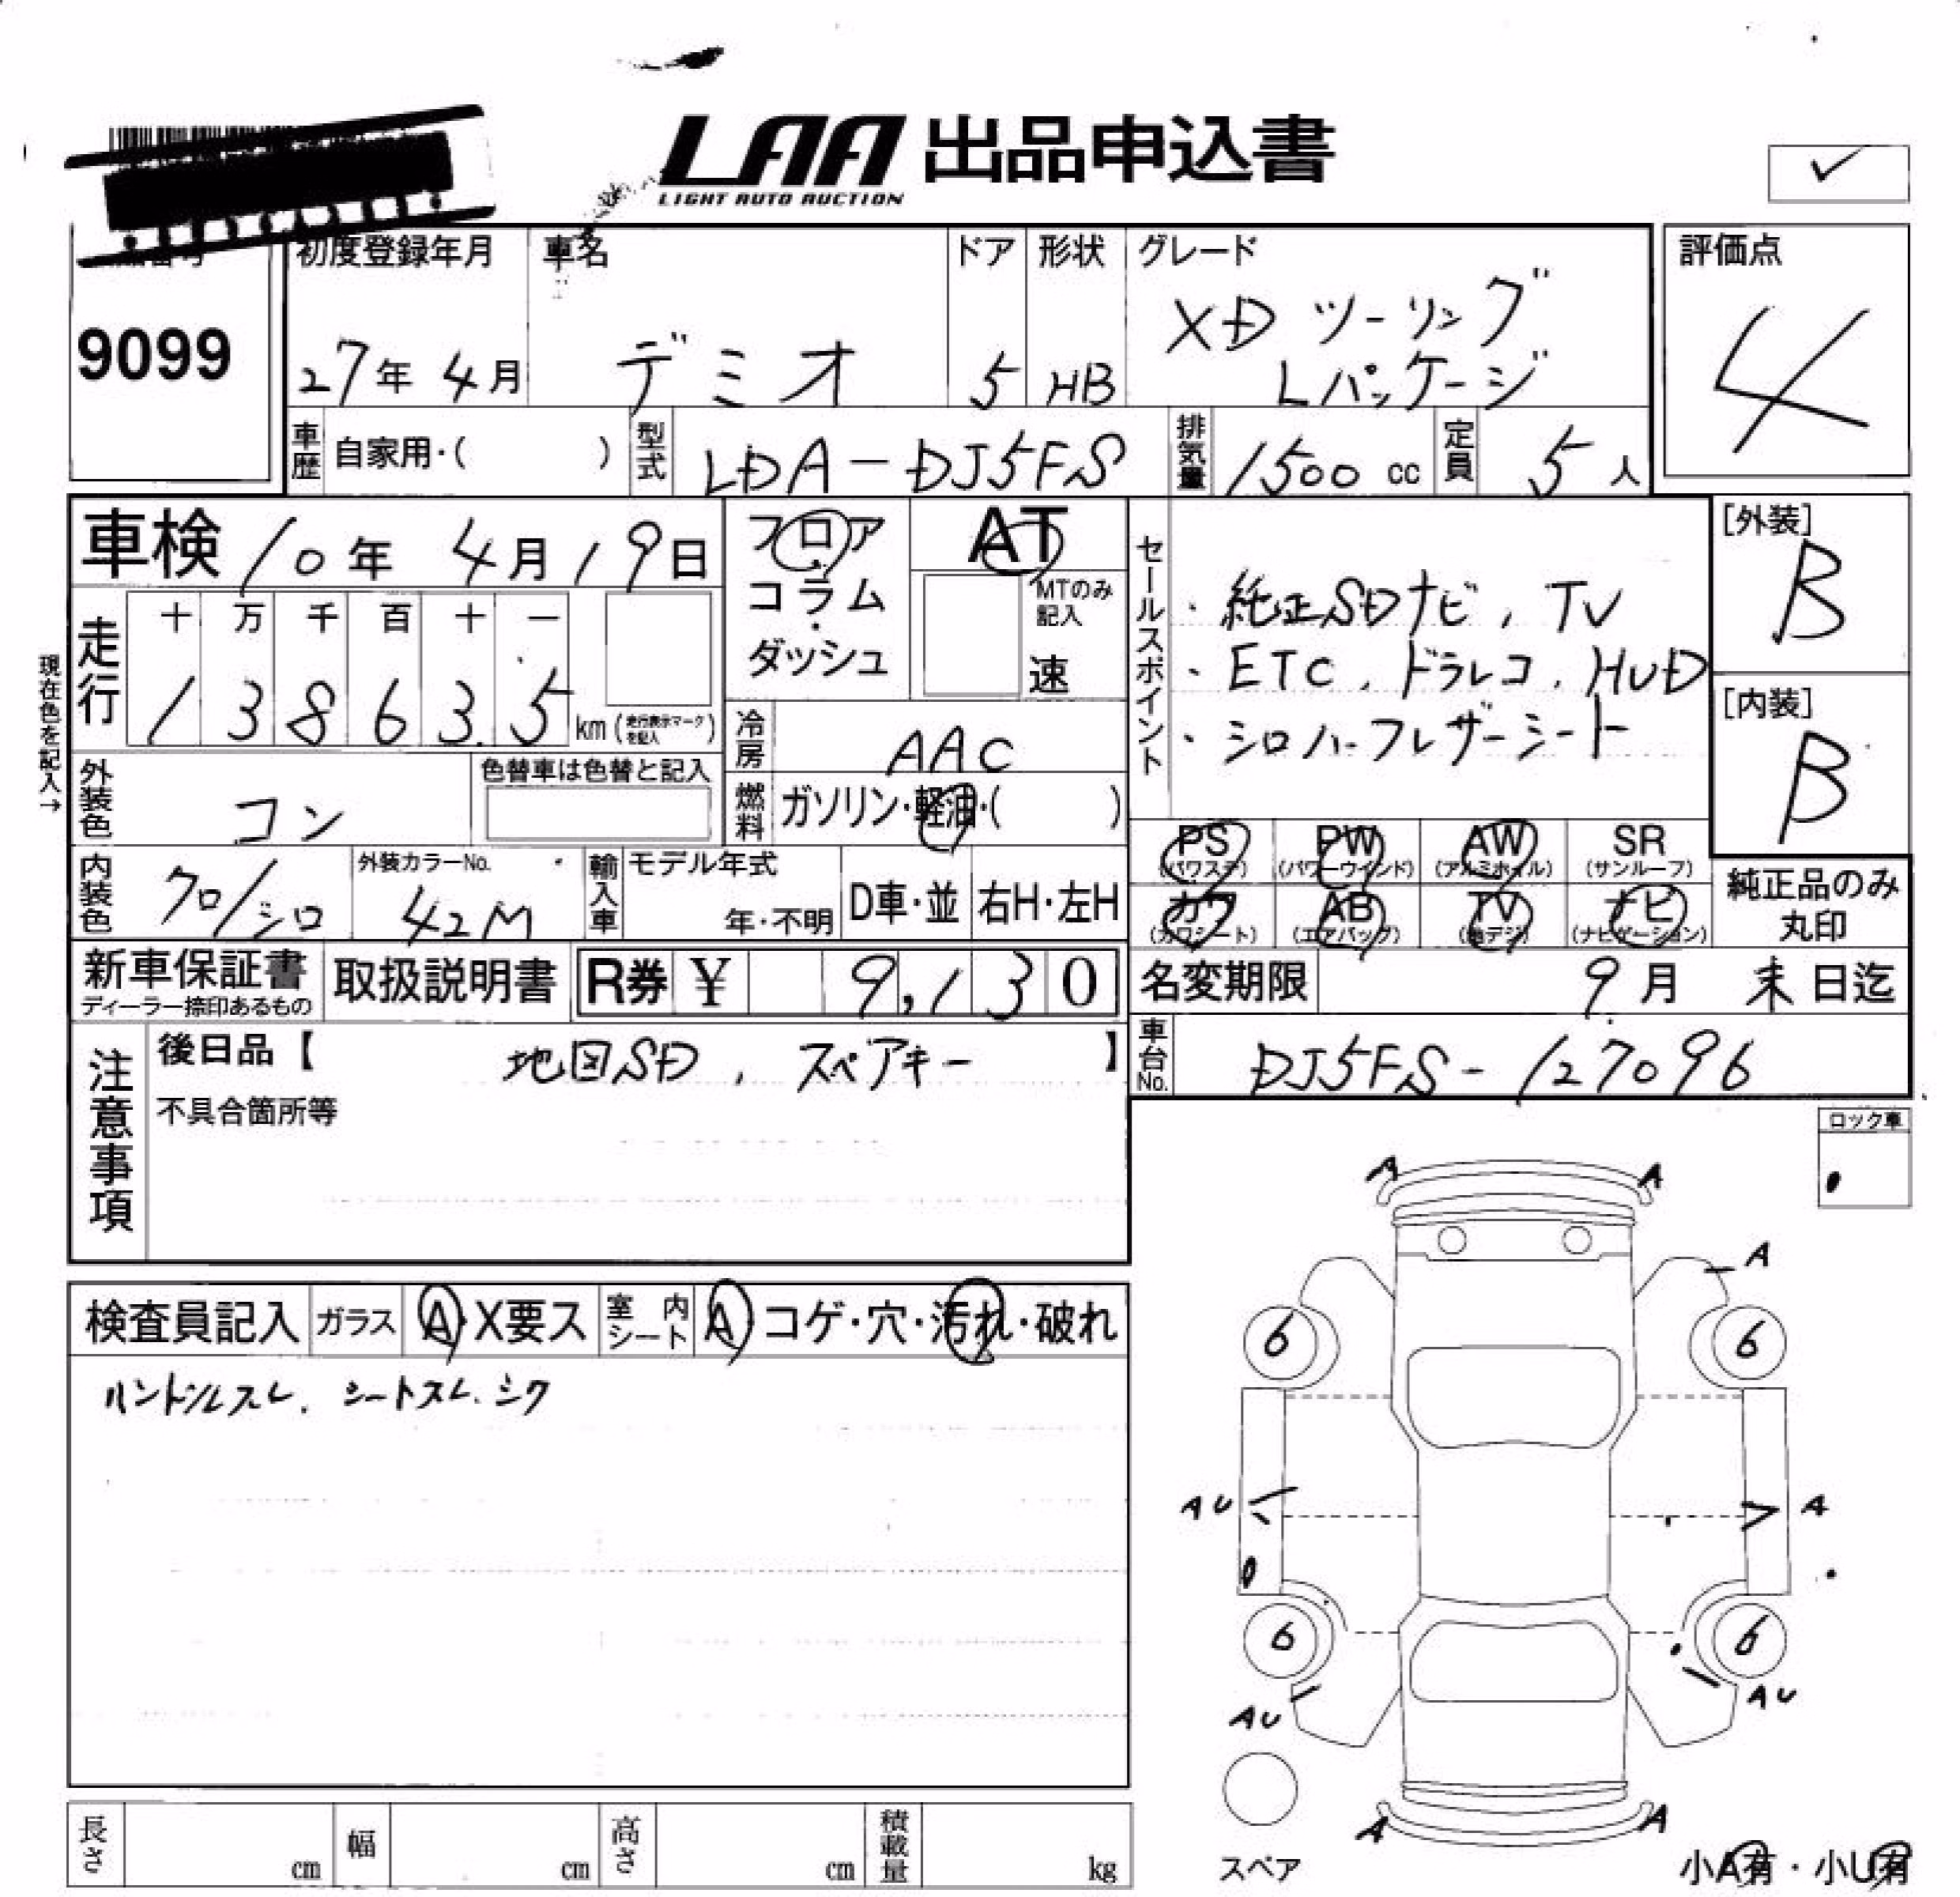 LAA 出品申込書
LIGHT AUTO AUCTION
✓
9099
初度登録年月 車名 ドア 形状 グレード 評価点
27年 4月 デミオ 5 HB XD ツーリング Lパッケージ 4
車歴 自家用・( ) 型式 LDA-DJ5FS 排気量 1500 cc 定員 5 人
車検 10年 4月 19日 フロア・コラム・ダッシュ AT
MTのみ記入 速
現在色を記入→
走行 十 万 千 百 十 一
1 3 8 6 3 5 km (走行表示マークを記入)
セールスポイント
・純正SDナビ, TV
・ETC, ドラレコ, HUD
・シロハーフレザーシート
[外装] B
[内装] B
冷房 AAC
外装色 コン 色替車は色替と記入 燃料 ガソリン・軽油・( )
PS (パワステ) PW (パワーウインド) AW (アルミホイル) SR (サンルーフ)
カワ (カワシート) AB (エアバッグ) TV (地デジ) ナビ (ナビゲーション) 純正品のみ丸印
内装色 クロ/シロ 外装カラーNo. 42M 輸入車 モデル年式 年・不明 D車・並 右H・左H
新車保証書 ディーラー捺印あるもの 取扱説明書 R券 ¥ 9,130 名変期限 9月 末日迄
注意事項 後日品【 地図SD, スペアキー 】 車台No. DJ5FS-127096
不具合箇所等
ロック車
検査員記入 ガラス A・X要ス 室内シート A コゲ・穴・汚れ・破れ
ハンドルスレ. シートスレ. シワ
A A
A
6 6
AU A
6 6
AU AU
A A
スペア
小A有・小U有
長さ cm 幅 cm 高さ cm 積載量 kg